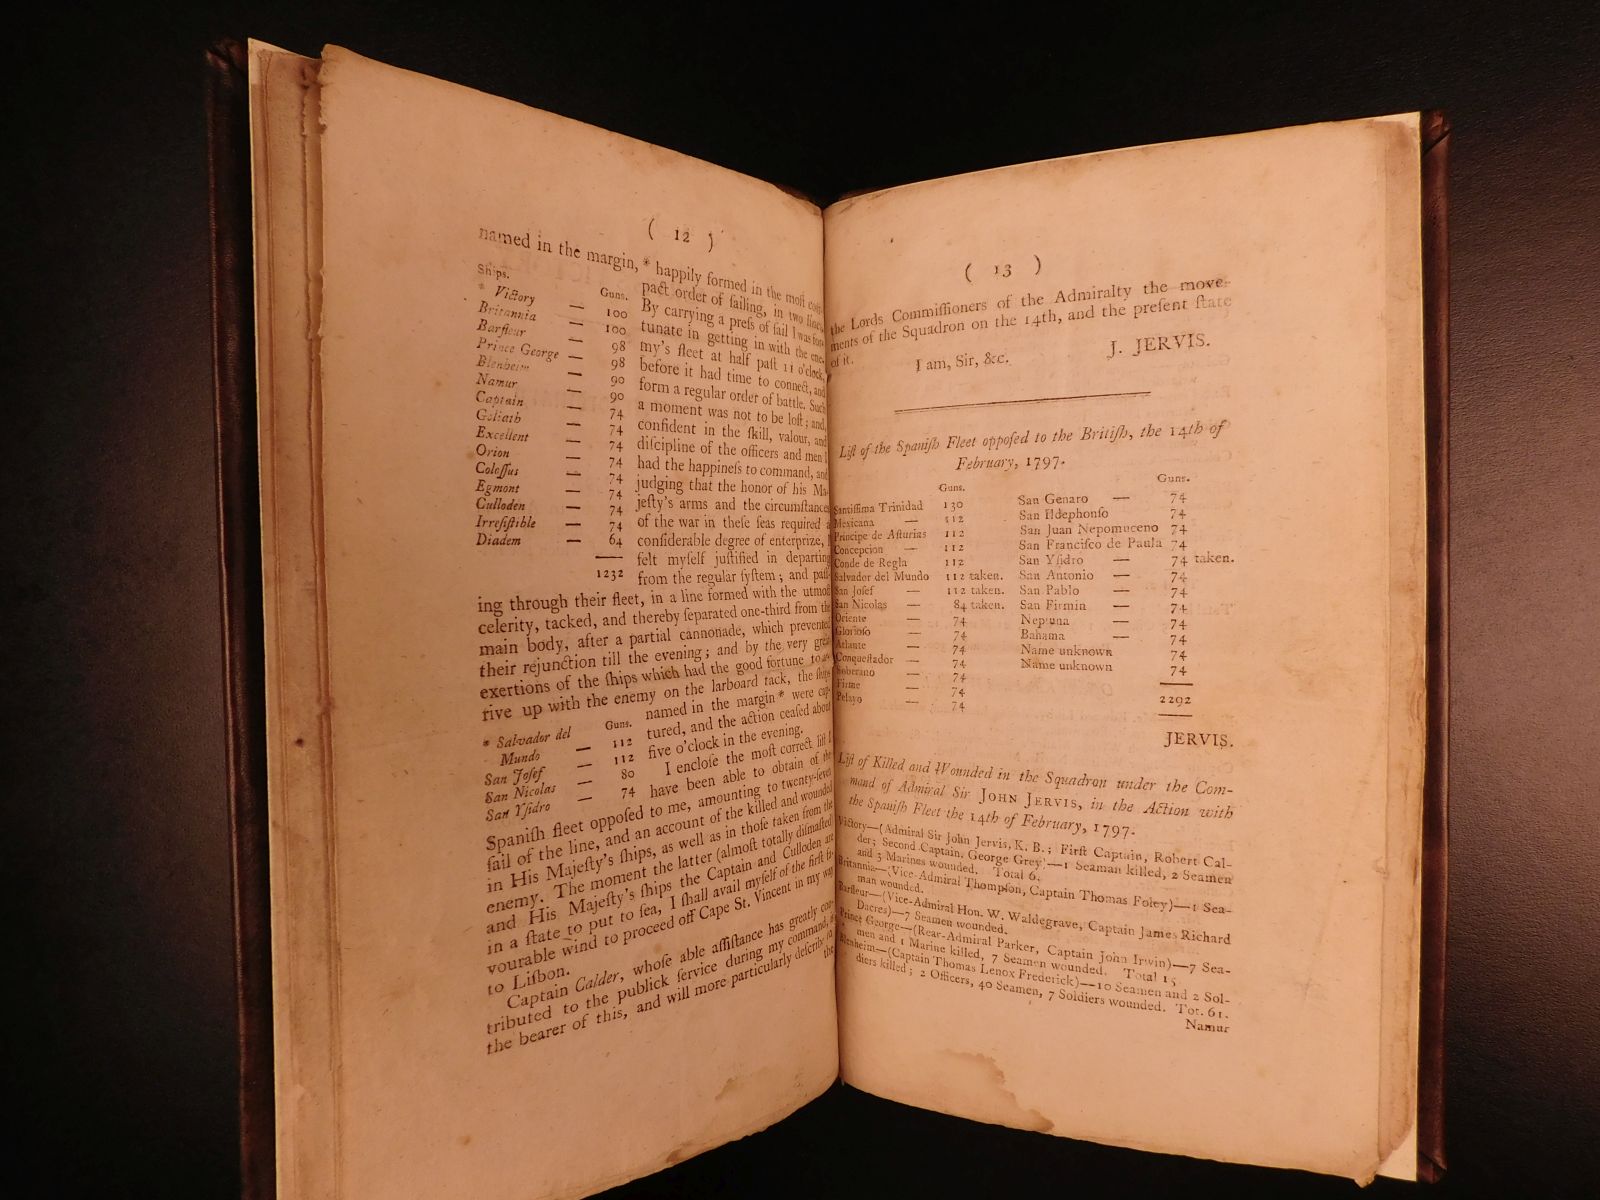 ( 12 )
named in the margin, * happily formed in the most com-
pact order of sailing, in two lines.
By carrying a press of sail I was for-
tunate in getting in with the ene-
my's fleet at half past 11 o'clock,
before it had time to connect, and
form a regular order of battle. Such
a moment was not to be lost; and,
confident in the skill, valour, and
discipline of the officers and men I
had the happiness to command, and
judging that the honor of his Ma-
jesty's arms and the circumstances
of the war in these seas required a
considerable degree of enterprize, I
felt myself justified in departing
from the regular system; and pass-
Ships. Guns.
* Victory — 100
Britannia — 100
Barfleur — 98
Prince George — 98
Blenheim — 90
Namur — 90
Captain — 74
Goliath — 74
Excellent — 74
Orion — 74
Colossus — 74
Egmont — 74
Culloden — 74
Irresistible — 74
Diadem — 64
1232
ing through their fleet, in a line formed with the utmost
celerity, tacked, and thereby separated one-third from the
main body, after a partial cannonade, which prevented
their rejunction till the evening; and by the very great
exertions of the ships which had the good fortune to ar-
rive up with the enemy on the larboard tack, the ships
named in the margin * were cap-
tured, and the action ceased about
five o'clock in the evening.
I enclose the most correct list I
have been able to obtain of the
Guns.
* Salvador del
Mundo — 112
San Josef — 112
San Nicolas — 80
San Ysidro — 74
Spanish fleet opposed to me, amounting to twenty-seven
sail of the line, and an account of the killed and wounded
in His Majesty's ships, as well as in those taken from the
enemy. The moment the latter (almost totally dismasted)
and His Majesty's ships the Captain and Culloden are
in a state to put to sea, I shall avail myself of the first fa-
vourable wind to proceed off Cape St. Vincent in my way
to Lisbon.
Captain Calder, whose able assistance has greatly con-
tributed to the publick service during my command, is
the bearer of this, and will more particularly describe to
the
( 13 )
the Lords Commissioners of the Admiralty the move-
ments of the Squadron on the 14th, and the present state
of it.
I am, Sir, &c.
J. JERVIS.
List of the Spanish Fleet opposed to the British, the 14th of
February, 1797.
Guns.
Santissima Trinidad 130
Mexicana — 112
Principe de Asturias 112
Concepcion — 112
Conde de Regla 112
Salvador del Mundo 112 taken.
San Josef — 112 taken.
San Nicolas — 84 taken.
Oriente — 74
Glorioso — 74
Atlante — 74
Conquestador — 74
Soberano — 74
Firme — 74
Pelayo — 74
Guns.
San Genaro — 74
San Ildephonso 74
San Juan Nepomuceno 74
San Francisco de Paula 74
San Ysidro — 74 taken.
San Antonio — 74
San Pablo — 74
San Firmin — 74
Neptuna — 74
Bahama — 74
Name unknown 74
Name unknown 74
2292
JERVIS.
List of Killed and Wounded in the Squadron under the Com-
mand of Admiral Sir JOHN JERVIS, in the Action with
the Spanish Fleet the 14th of February, 1797.
Victory—(Admiral Sir John Jervis, K. B.; First Captain, Robert Cal-
der; Second Captain, George Grey)—1 Seaman killed, 2 Seamen
and 3 Marines wounded. Total 6.
Britannia—(Vice-Admiral Thompson, Captain Thomas Foley)—1 Sea-
man wounded.
Barfleur—(Vice-Admiral Hon. W. Waldegrave, Captain James Richard
Dacres)—7 Seamen wounded.
Prince George—(Rear-Admiral Parker, Captain John Irwin)—7 Sea-
men and 1 Marine killed, 7 Seamen wounded. Total 15
Blenheim—(Captain Thomas Lenox Frederick)—10 Seamen and 2 Sol-
diers killed; 2 Officers, 40 Seamen, 7 Soldiers wounded. Tot. 61.
Namur